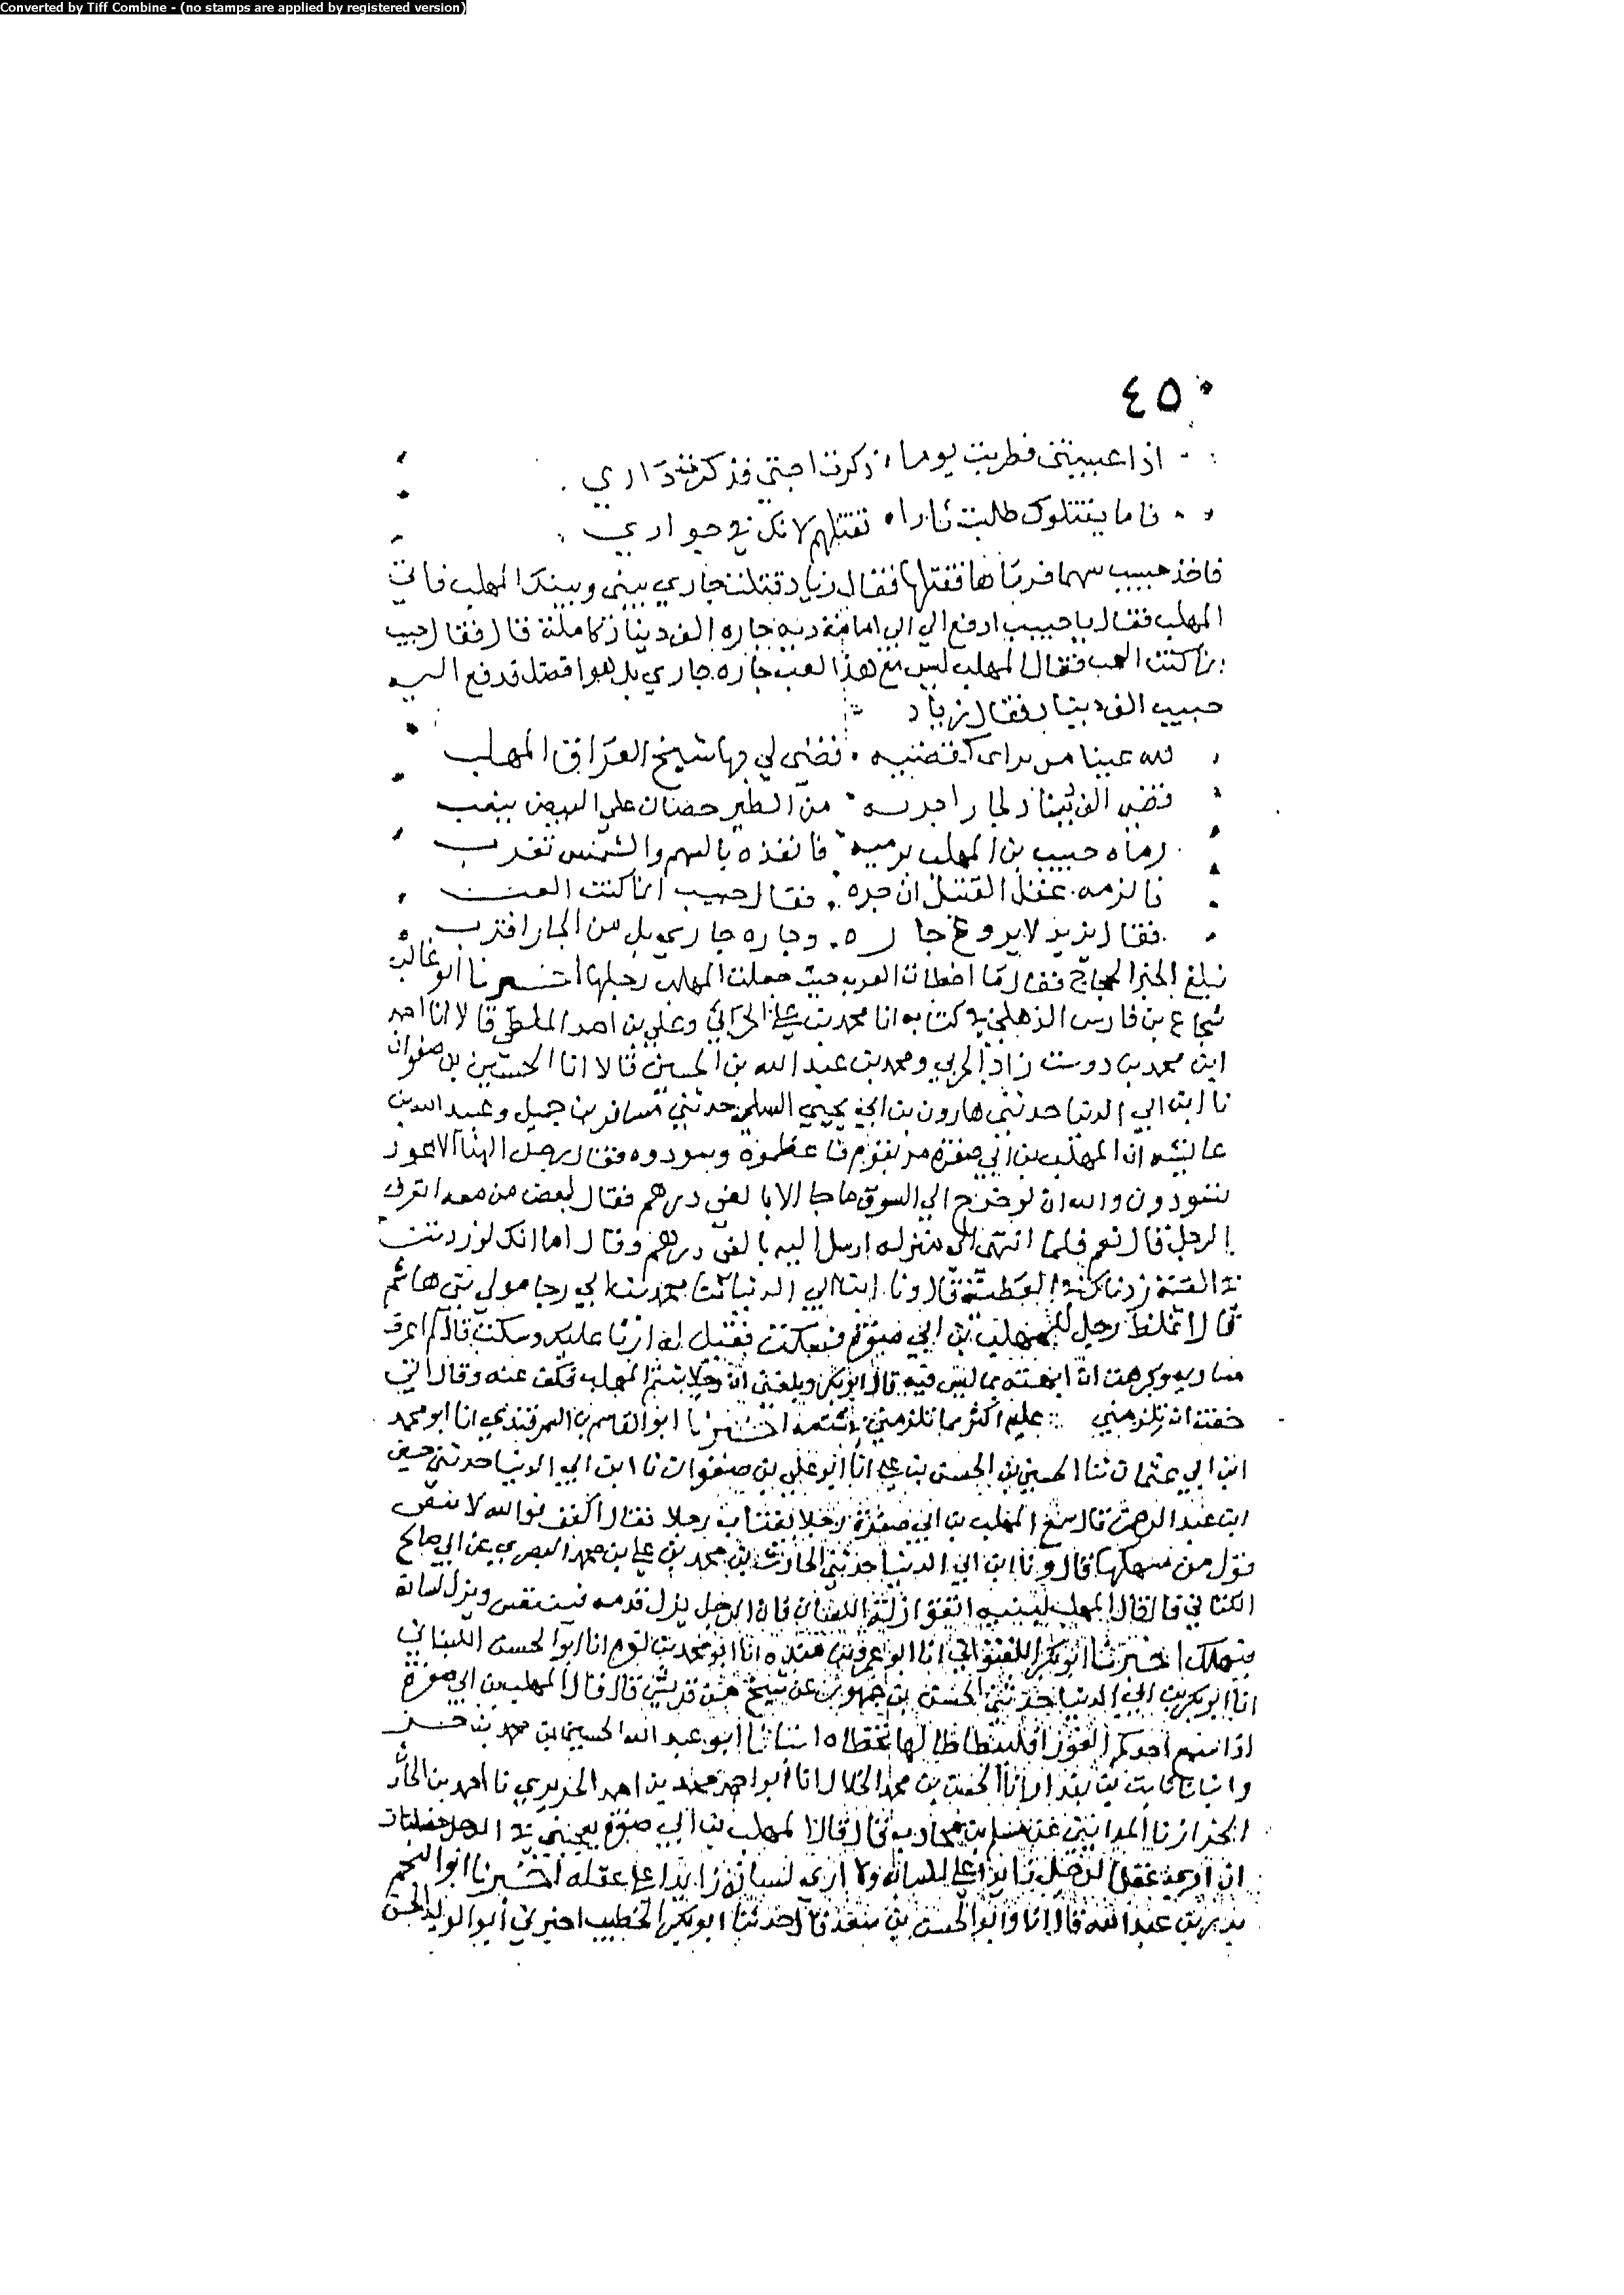 Converted by Tiff Combine - (no stamps are applied by registered version)
٤٥٠
اذا غنيتني فطربت يوما ذكرت احبتي فذكرت داري
فاما يقتلوك طلبت ثارا تقتلهم لانك في جواري
فاخذ حبيب سهما فرماها فقتلها فقال زياد قتلت جاري بيني وبينك المهلب فاتى
المهلب فقال يا حبيب ادفع الي ابي امامة دية جاره الف دينار كاملة قال فقال حبيب
انما كنت العب فقال المهلب ليس مع هذا لعب جاره جاري بل هو افضل فدفع اليه
حبيب الف دينار فقال زياد
فلله عينا من راى كقضية قضى لي بها شيخ العراق المهلب
قضى الف دينار لجار اجرته من الطير حضان على البيض ينعب
رماه حبيب بن المهلب رمية فانفذه بالسهم والشمس تغرب
فالزمه عقل القتيل ابن حره فقال حبيب انما كنت العب
فقال يزيد لا يروع جاره وجاره جاري بل من الجار اقرب
فبلغ الخبر الحجاج فقال ما اخطات العرب حيث جعلت المهلب رجلها اخبرنا ابو غالب
شجاع بن فارس الذهلي في كتابه انا محمد بن علي الحربي وعلي بن احمد الملطي قالا انا احمد
ابن محمد بن دوست زاد الحربي ومحمد بن عبد الله بن الحسين قالا انا الحسين بن صفوان
نا ابن ابي الدنيا حدثني هارون بن ابي يحيى السلمي حدثني مسافر بن جميل وعبيد الله بن
عائشه ان المهلب بن ابي صفرة مر بقوم فاعظموه وسودوه فقال رجل الهذا الاعور
تسودون والله ان لو خرج الي السوق ما جا الا بالفي درهم فقال لبعض من معه اتعرف
الرجل قال نعم فلما انتهى الى منزله ارسل اليه بالفي درهم وقال اما انك لو زدتنا
في القيمة زدناك في العطية قال ونا ابن ابي الدنيا نا محمد بن ابي رجا مولى بني هاشم
قال اغلظ رجل للمهلب بن ابي صفرة فسكت فقيل له اربا عليك وسكت قال لم اعرف
مساويه وكرهت ان ابهته بما ليس فيه قال ابو بكر وبلغني ان رجلا شتم المهلب فكف عنه وقال اني
خفت ان يلزمني عليه اكثر مما تلزمني شتمه اخبرنا ابو القاسم بن السمرقندي انا ابو محمد
ابن ابي عثمان نا الحسين بن الحسن بن علي انا ابو علي بن صفوان نا ابن ابي الدنيا حدثني حسين
ابن عبد الرحمن قال سمع المهلب بن ابي صفرة رجلا يغتاب رجلا فقال اكفف فوالله لا ينقى
فوك من سهكها قال ونا ابن ابي الدنيا حدثني الحارث بن محمد بن علي بن محمد البصري عن ابي صالح
الكناني قال قال المهلب لبنيه اتقوا زلة اللسان فان الرجل يزل قدمه فينتعش ويزل لسانه
فيهلك اخبرنا ابو بكر اللفتواني انا ابو عمرو بن منده انا ابو محمد بن يوه انا ابو الحسن اللبناني
انا ابو بكر بن ابي الدنيا حدثني الحسن بن جمهور عن شيخ من قريش قال قال المهلب بن ابي صفرة
اذا سمع احدكم العورا فليتطاطا لها تخطاه انبانا ابو عبد الله الحسين بن محمد بن خسرو
وانبانا ثابت بن بندار انا الحسن بن محمد الخلال انا ابو احمد محمد بن احمد الحريري نا احمد بن الحارث
الخزاز نا المدائني عن مسلم بن محارب قال قال المهلب بن ابي صفرة يعجبني في الرجل خصلتان
ان ارى عقل الرجل زايدا على لسانه ولا ارى لسانه زايدا على عقله اخبرنا ابو النجم
بدر بن عبد الله قال انا وابو الحسن بن سعيد قالا حدثنا ابو بكر الخطيب اخبرني ابو الوليد الحسن